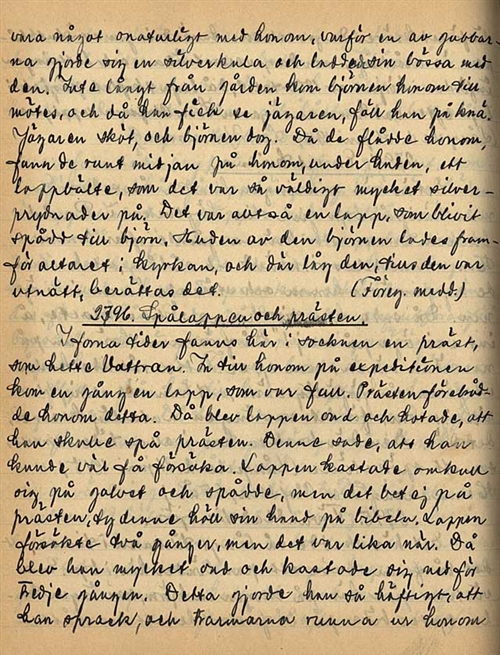 vara något onaturligt med honom, varför en av gubbar-
na gjorde sig en silverkula och laddade sin bössa med
den. Inte långt från gården kom björnen honom till
mötes, och då han fick se jägaren, föll han på knä.
Jägaren sköt, och björnen dog. Då de flådde honom,
fann de runt midjan på honom, under huden, ett
lappbälte, som det var så väldigt mycket silver-
prydnader på. Det var alltså en lapp, som blivit
spådd till björn. Huden av den björnen lades fram-
för altaret i kyrkan, och där låg den, tills den var
utnött, berättas det. (Föreg. medd.)
2796. Spålappen och prästen.
I forna tider fanns här i socknen en präst,
som hette Vattran. In till honom på expeditionen
kom en gång en lapp, som var full. Prästen förebråd-
de honom detta. Då blev lappen ond och hotade, att
han skulle spå prästen. Denne sade, att han
kunde väl få försöka. Lappen kastade omkull
sig på golvet och spådde, men det bet ej på
prästen, ty denne höll sin hand på bibeln. Lappen
försökte två gånger, men det var lika när. Då
blev han mycket ond och kastade sig ned för
tredje gången. Detta gjorde han så häftigt, att
han sprack, och tarmarna runna ur honom